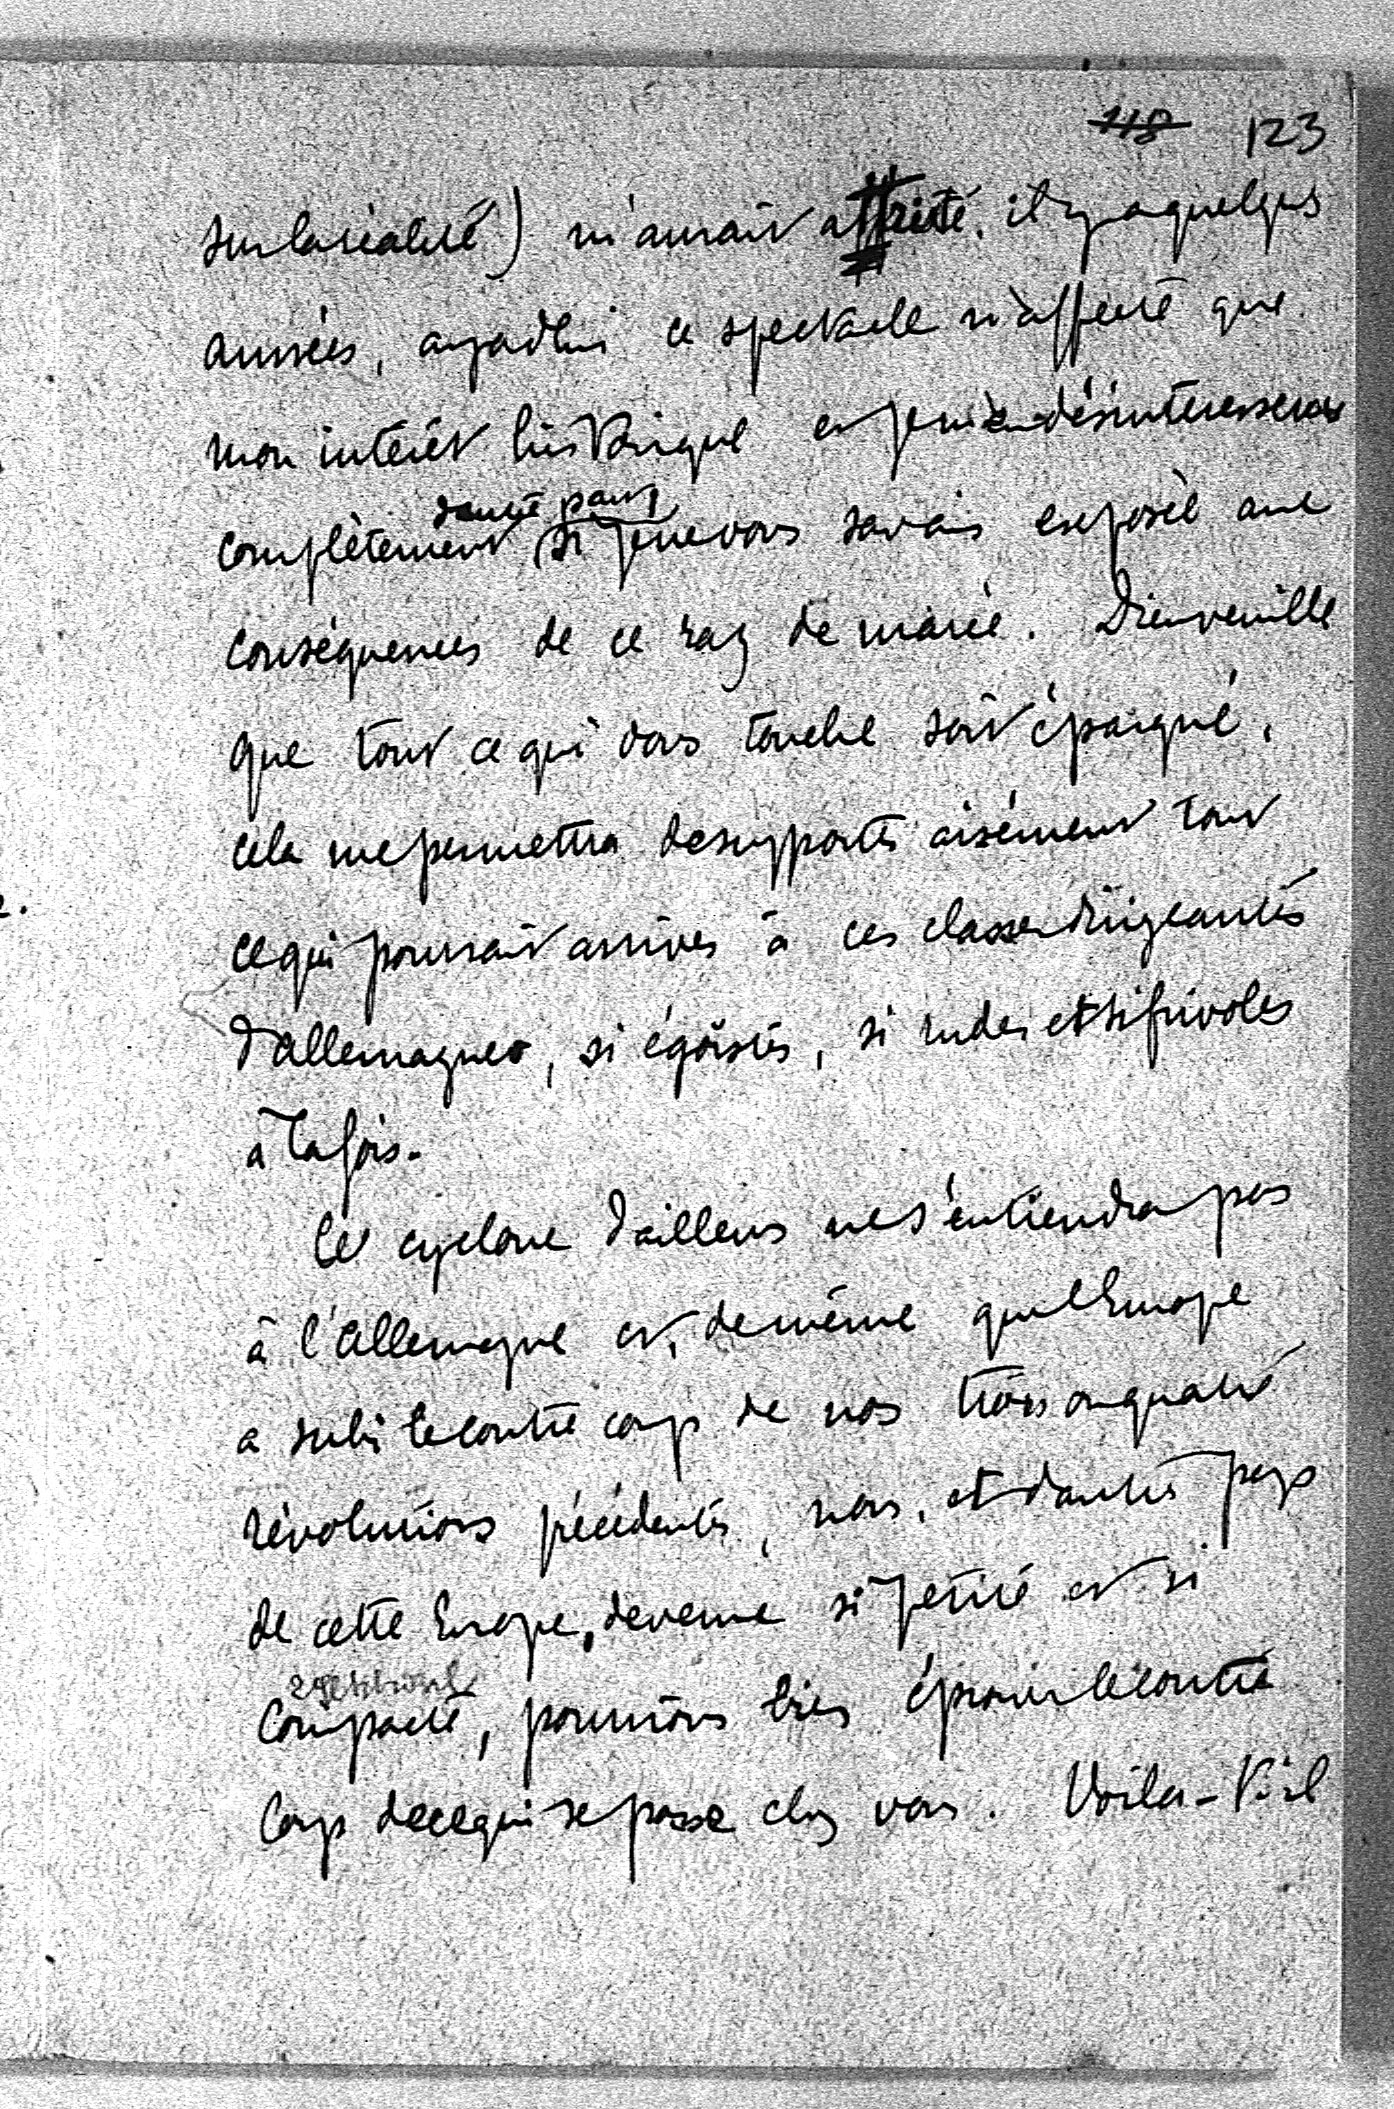 118 123
sur la réalité) m'aurait affecté, il y a quelques
années, aujourd'hui ce spectacle n'affecte que
mon intérêt historique et je m'en désintéresserais
complètement si je ne vous savais exposée aux
conséquences de ce raz de marée. Dieu veuille
que tout ce qui vous touche soit épargné,
cela me permettra de supporter aisément tout
ce qui pourrait arriver à ces classes dirigeantes
d'Allemagne, si égoïstes, si rudes et si frivoles
à la fois.
Ce cyclone d'ailleurs ne s'en tiendra pas
à l'Allemagne et, de même que l'Europe
a subi le contre coup de nos trois ou quatre
révolutions précédentes, nous, et d'autres pays
de cette Europe, devenue si petite et si
compacte, pourrions bien éprouver le contre
coup de ce qui se passe chez vous. Voilà-t-il